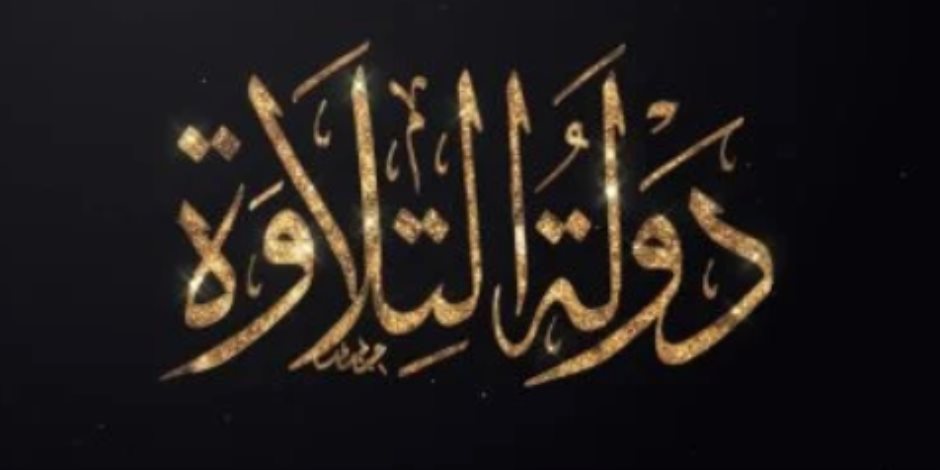 دَوْلَةُ التِّلَاوَة